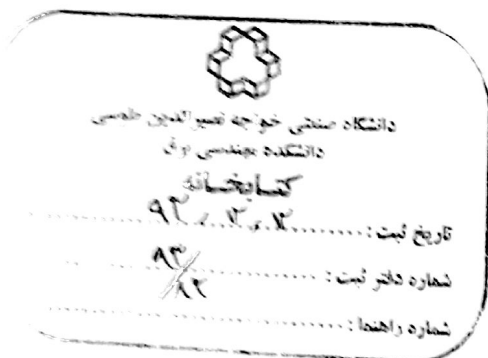 دانشگاه صنعتی خواجه نصیرالدین طوسی
دانشکده مهندسی برق
کتابخانه
تاریخ ثبت :
شماره دفتر ثبت : ۸۳
شماره راهنما :